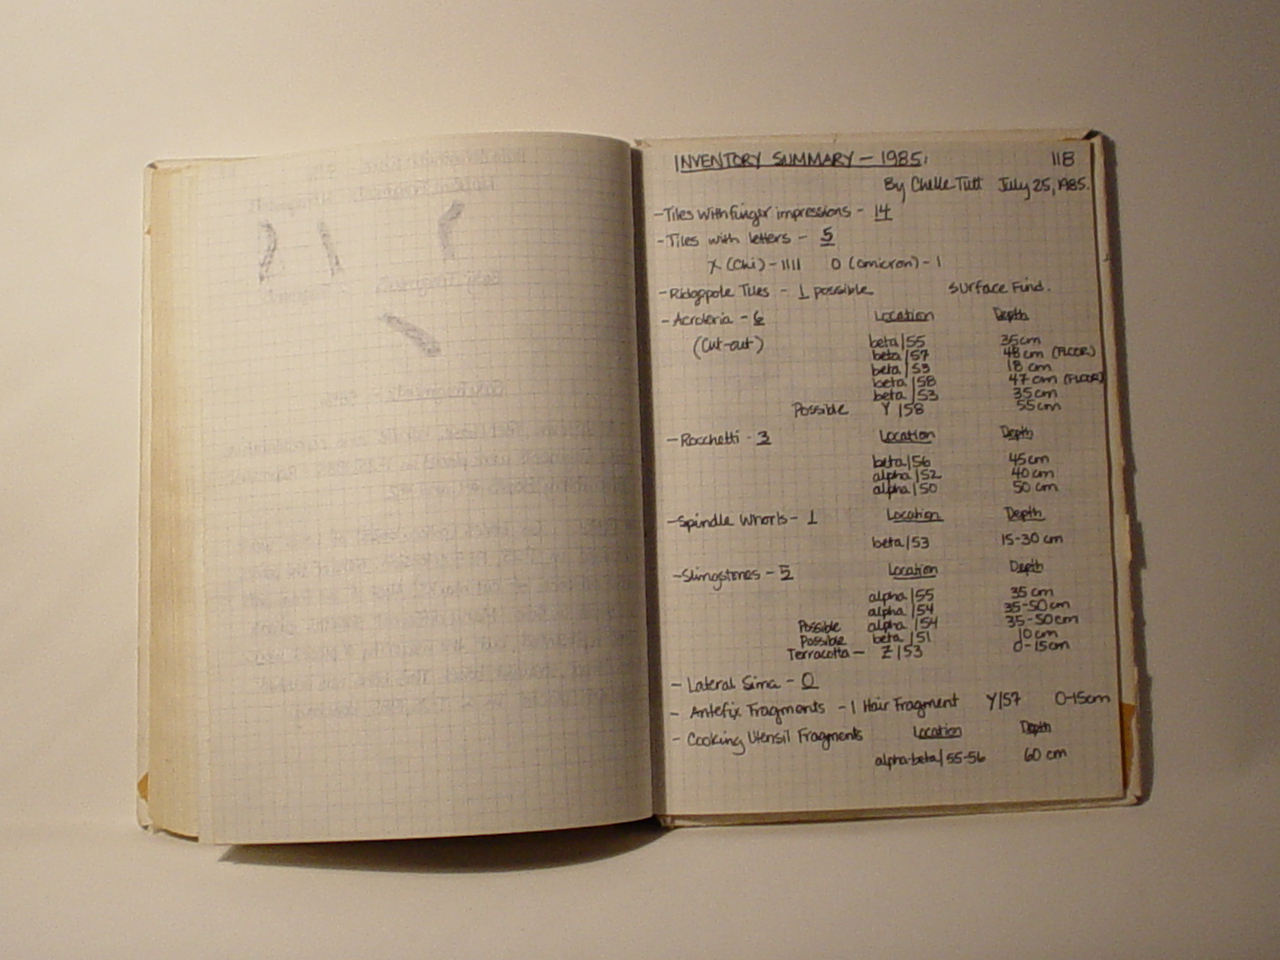 INVENTORY SUMMARY - 1985. 118
By Chelle Tutt July 25, 1985.
- Tiles with finger impressions - 14
- Tiles with letters - 5
X (Chi) - IIII O (omicron) - 1
- Ridgepole Tiles - 1 possible Surface Find.
- Acroteria - 6 Location Depth
(Cut-out) beta/55 35cm
beta/57 48 cm (FLOOR)
beta/53 18 cm
beta/58 47 cm (FLOOR)
beta/53 35 cm
Possible Y/58 55cm
- Rocchetti - 3 Location Depth
beta/56 45cm
alpha/52 40 cm
alpha/50 50 cm
- Spindle Whorls - 1 Location Depth
beta/53 15-30 cm
- Slingstones - 5 Location Depth
alpha/55 35 cm
alpha/54 35-50cm
Possible alpha/54 35-50cm
Possible beta/51 10cm
Terracotta - Z/53 0-15cm
- Lateral Sima - 0
- Antefix Fragments - 1 Hair Fragment Y/57 0-15cm
- Cooking Utensil Fragments Location Depth
alpha-beta/55-56 60 cm